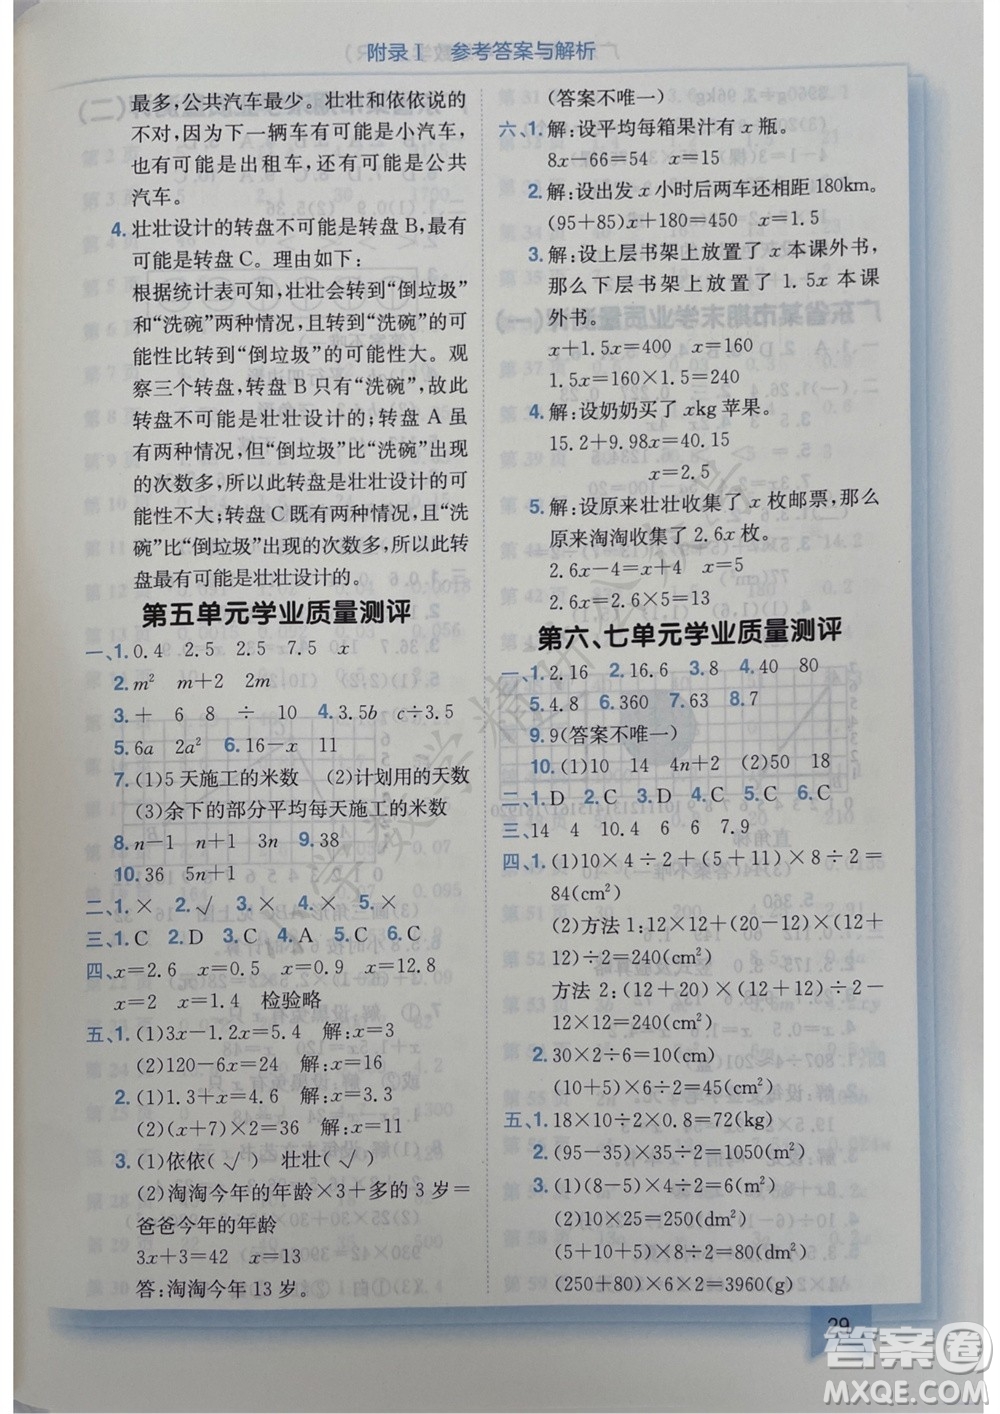 附录Ⅰ 参考答案与解析
最多,公共汽车最少。壮壮和依依说的
不对,因为下一辆车有可能是小汽车,
也有可能是出租车,还有可能是公共
汽车。
4. 壮壮设计的转盘不可能是转盘 B,最有
可能是转盘 C。理由如下:
根据统计表可知,壮壮转到“倒垃圾”
和“洗碗”两种情况,且转到“洗碗”的可
能性比转到“倒垃圾”的可能性大。观
察三个转盘,转盘 B 只有“洗碗”,故此
转盘不可能是壮壮设计的;转盘 A 虽
有两种情况,但“倒垃圾”比“洗碗”出现
的次数多,所以此转盘是壮壮设计的可
能性不大;转盘 C 既有两种情况,且“洗
碗”比“倒垃圾”出现的次数多,所以此转
盘最有可能是壮壮设计的。
第五单元学业质量测评
一、1. 0.4 2.5 2.5 7.5 x
2. m² m+2 2m
3. + 6 8 ÷ 10 4. 3.5b c÷3.5
5. 6a 2a² 6. 16-x 11
7. (1)5 天施工的米数 (2)计划用的天数
(3)余下的部分平均每天施工的米数
8. n-1 n+1 3n 9. 138
10. 36 5n+1
二、1. × 2. √ 3. × 4. × 5. ×
三、1. C 2. D 3. C 4. A 5. C 6. C
四、x=2.6 x=0.5 x=12.8
x=2 x=9 x=4 检验略
五、1. (1)3x-1.2x=5.4 解:x=3
(2)120-6x=24 解:x=16
2. (1)x+3=4.6 解:x=1.6
(2)(x+7)×2=36 解:x=11
3. (1)依依( √ ) 壮壮( √ )
(2)淘淘今年的年龄×3+多的 3 岁=
爸爸今年的年龄
3x+3=42 x=13
答:淘淘今年 13 岁。
(答案不唯一)
六、1. 解:设平均每箱果汁有 x 瓶。
8x-66=54 x=15
2. 解:设出发 x 小时后两车还相距 180km。
(95+85)x+180=450 x=1.5
3. 解:设上层书架上放置了 x 本课外书,
那么下层书架上放置了 1.5x 本课
外书。
x+1.5x=400 x=160
1.5x=1.5×160=240
4. 解:设奶奶买了 xkg 苹果。
15.2+9.98x=40.15
x=2.5
5. 解:设原来壮壮收集了 x 枚邮票,那么
原来淘淘收集了 2.6x 枚。
2.6x-4=x+4 x=5
2.6x=2.6×5=13
第六、七单元学业质量测评
一、1. 2.16 2. 16.6 3. 8 4. 40 80
5. 4.8 6. 360 7. 63 8. 7
9. 9(答案不唯一)
10. (1)10 14 4n+2 (2)50 18
二、1. D 2. C 3. D 4. B 5. C
三、14 4 10.4 6 6 7.9
四、1. (1)10×4÷2+(10+6)×8÷2=
84(cm²)
(2)方法 1:12×12+(20-12)×(12+
12)÷2=240(cm²)
方法 2:(12+20)×(12+12)÷2-
12×(12+12)÷2=240(cm²)
2. 30×2÷6=10(cm)
(5+10)×6÷2=45(cm²)
五、1. 18×10÷2×0.8=72(kg)
2. (95-35)×35÷2=1050(m²)
3. (1)(8-5)×4÷2=6(dm²)
(2)10×25=250(dm²)
(5+10+5)×8÷2=80(dm²)
(250+80)×6×2=3960(g)
29
答案圈
MXQE.COM